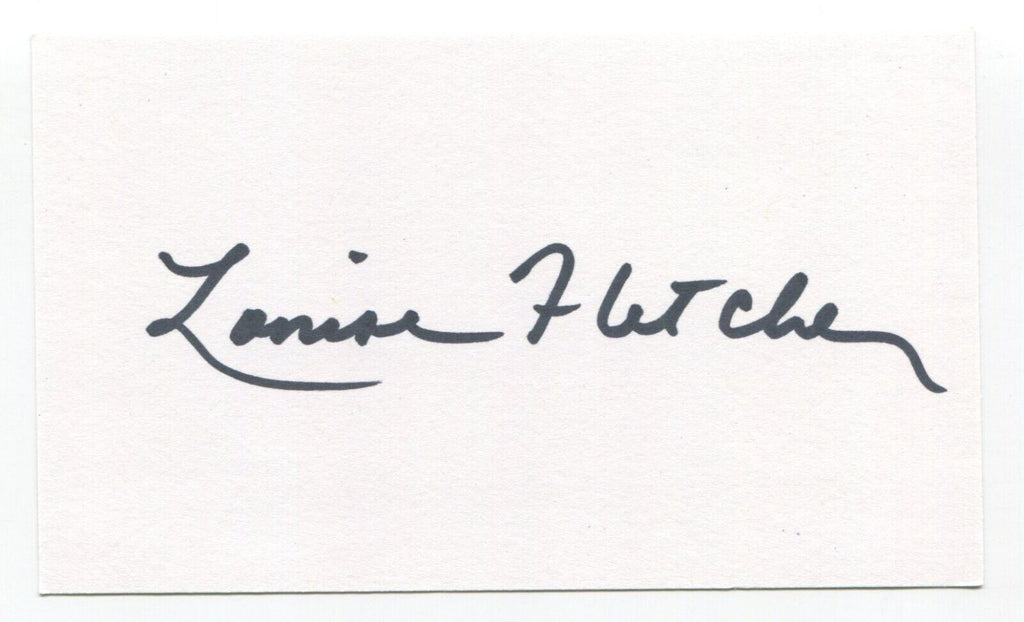 Louise Fletcher